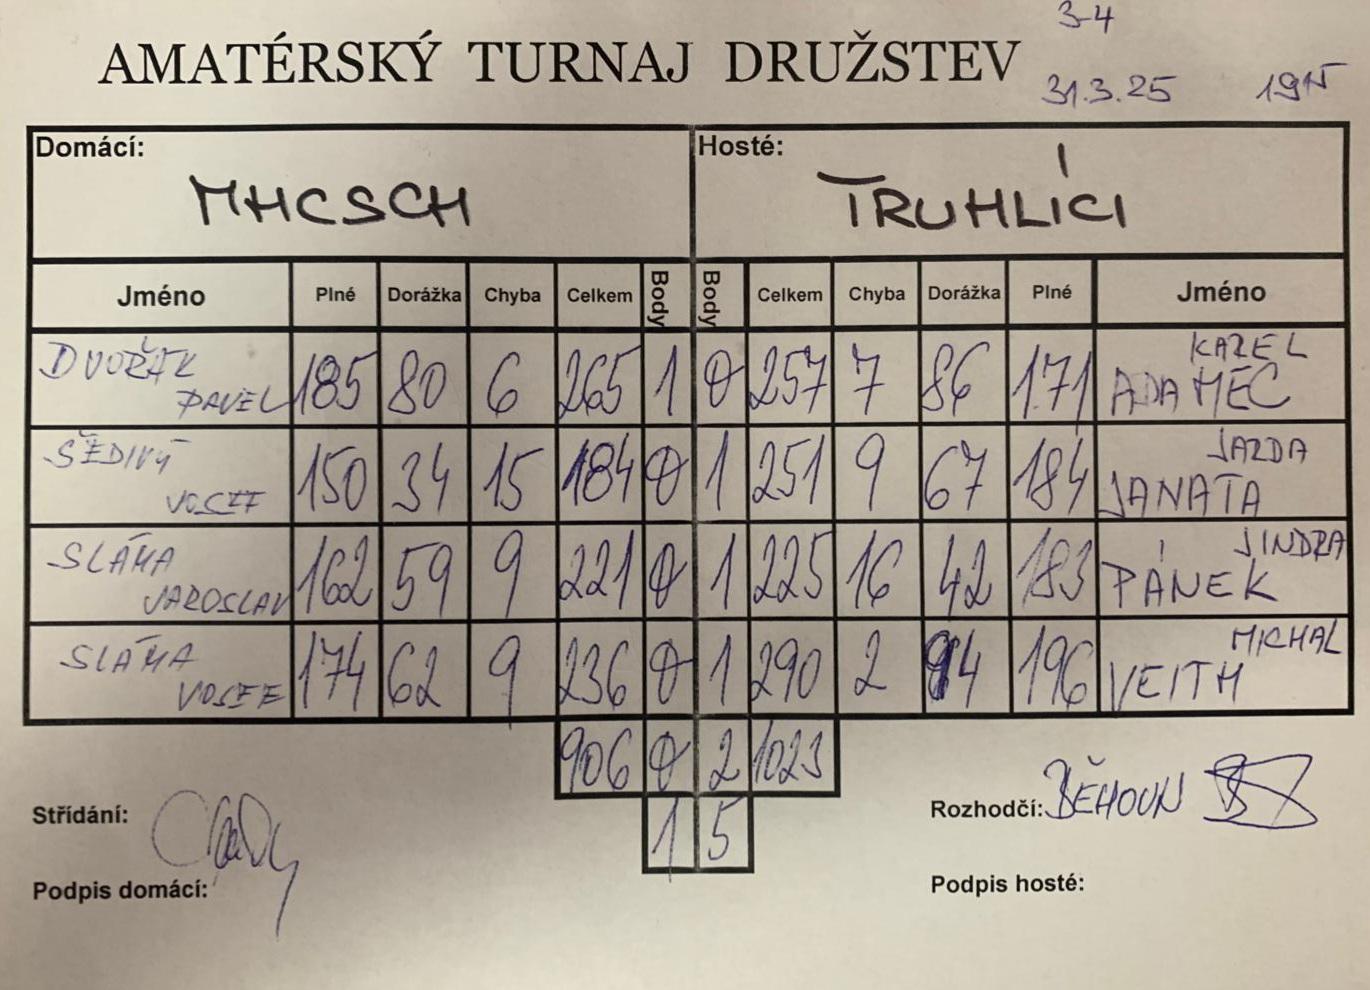 3-4
AMATÉRSKÝ TURNAJ DRUŽSTEV
31.3.25 19 15
Domácí: Hosté:
MHCSCH TRUHLÍCI
Jméno Plné Dorážka Chyba Celkem Body Body Celkem Chyba Dorážka Plné Jméno
DVOŘÁK PAVEL 185 80 6 265 1 0 257 7 86 171 KAREL ADAMEC
ŠEDIVÝ JOSEF 150 34 15 184 0 1 251 9 67 184 JARDA JANATA
SLÁMA JAROSLAV 162 59 9 221 0 1 225 16 42 183 JINDRA PÁNEK
SLÁMA JOSEF 174 62 9 236 0 1 290 2 94 196 MICHAL VEITH
906 0 2 1023
1 5
Střídání: Rozhodčí: BĚHOUN
Podpis domácí: Podpis hosté: